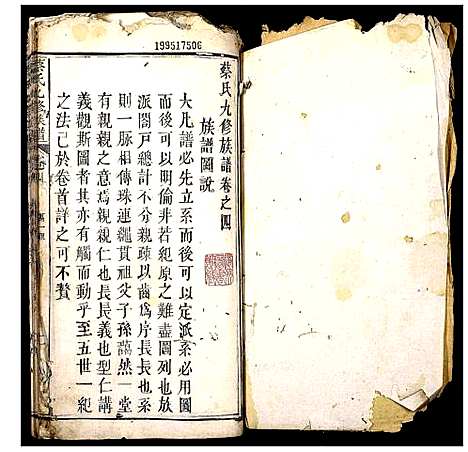 199517506
蔡氏九修族譜卷之四
族譜圖說
大凡譜必先立系而後可以定派系必用圖
而後可以明倫非若紀原之難盡圖列也故
派閤戶總計不分親疎以齒為序長長也系
則一脈相傳珠連繩貫祖父子孫藹然一堂
有親親之意焉親親仁也長長義也型仁講
義觀斯圖者其亦有觸而動乎至五世一紀
之法已於卷首詳之可不贅
蔡氏九修族譜